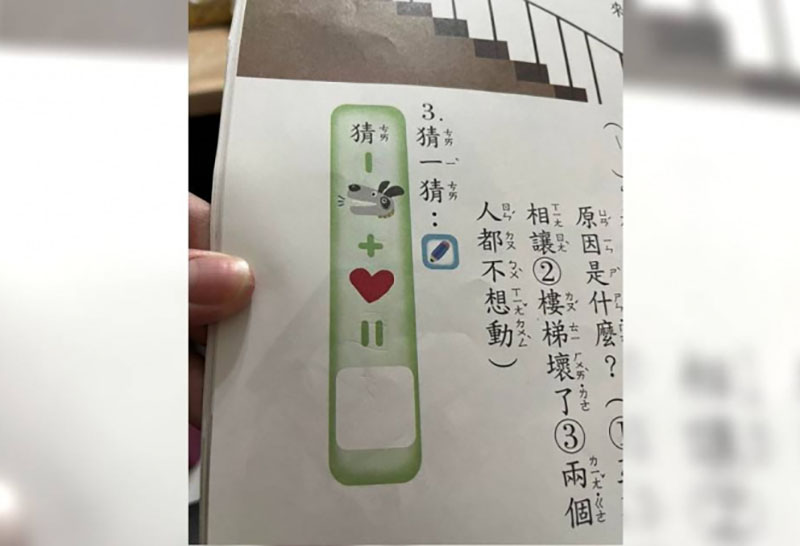 原因是什麼？(①
相讓②樓梯壞了③兩個
人都不想動)
3.猜一猜：
猜－＋＝